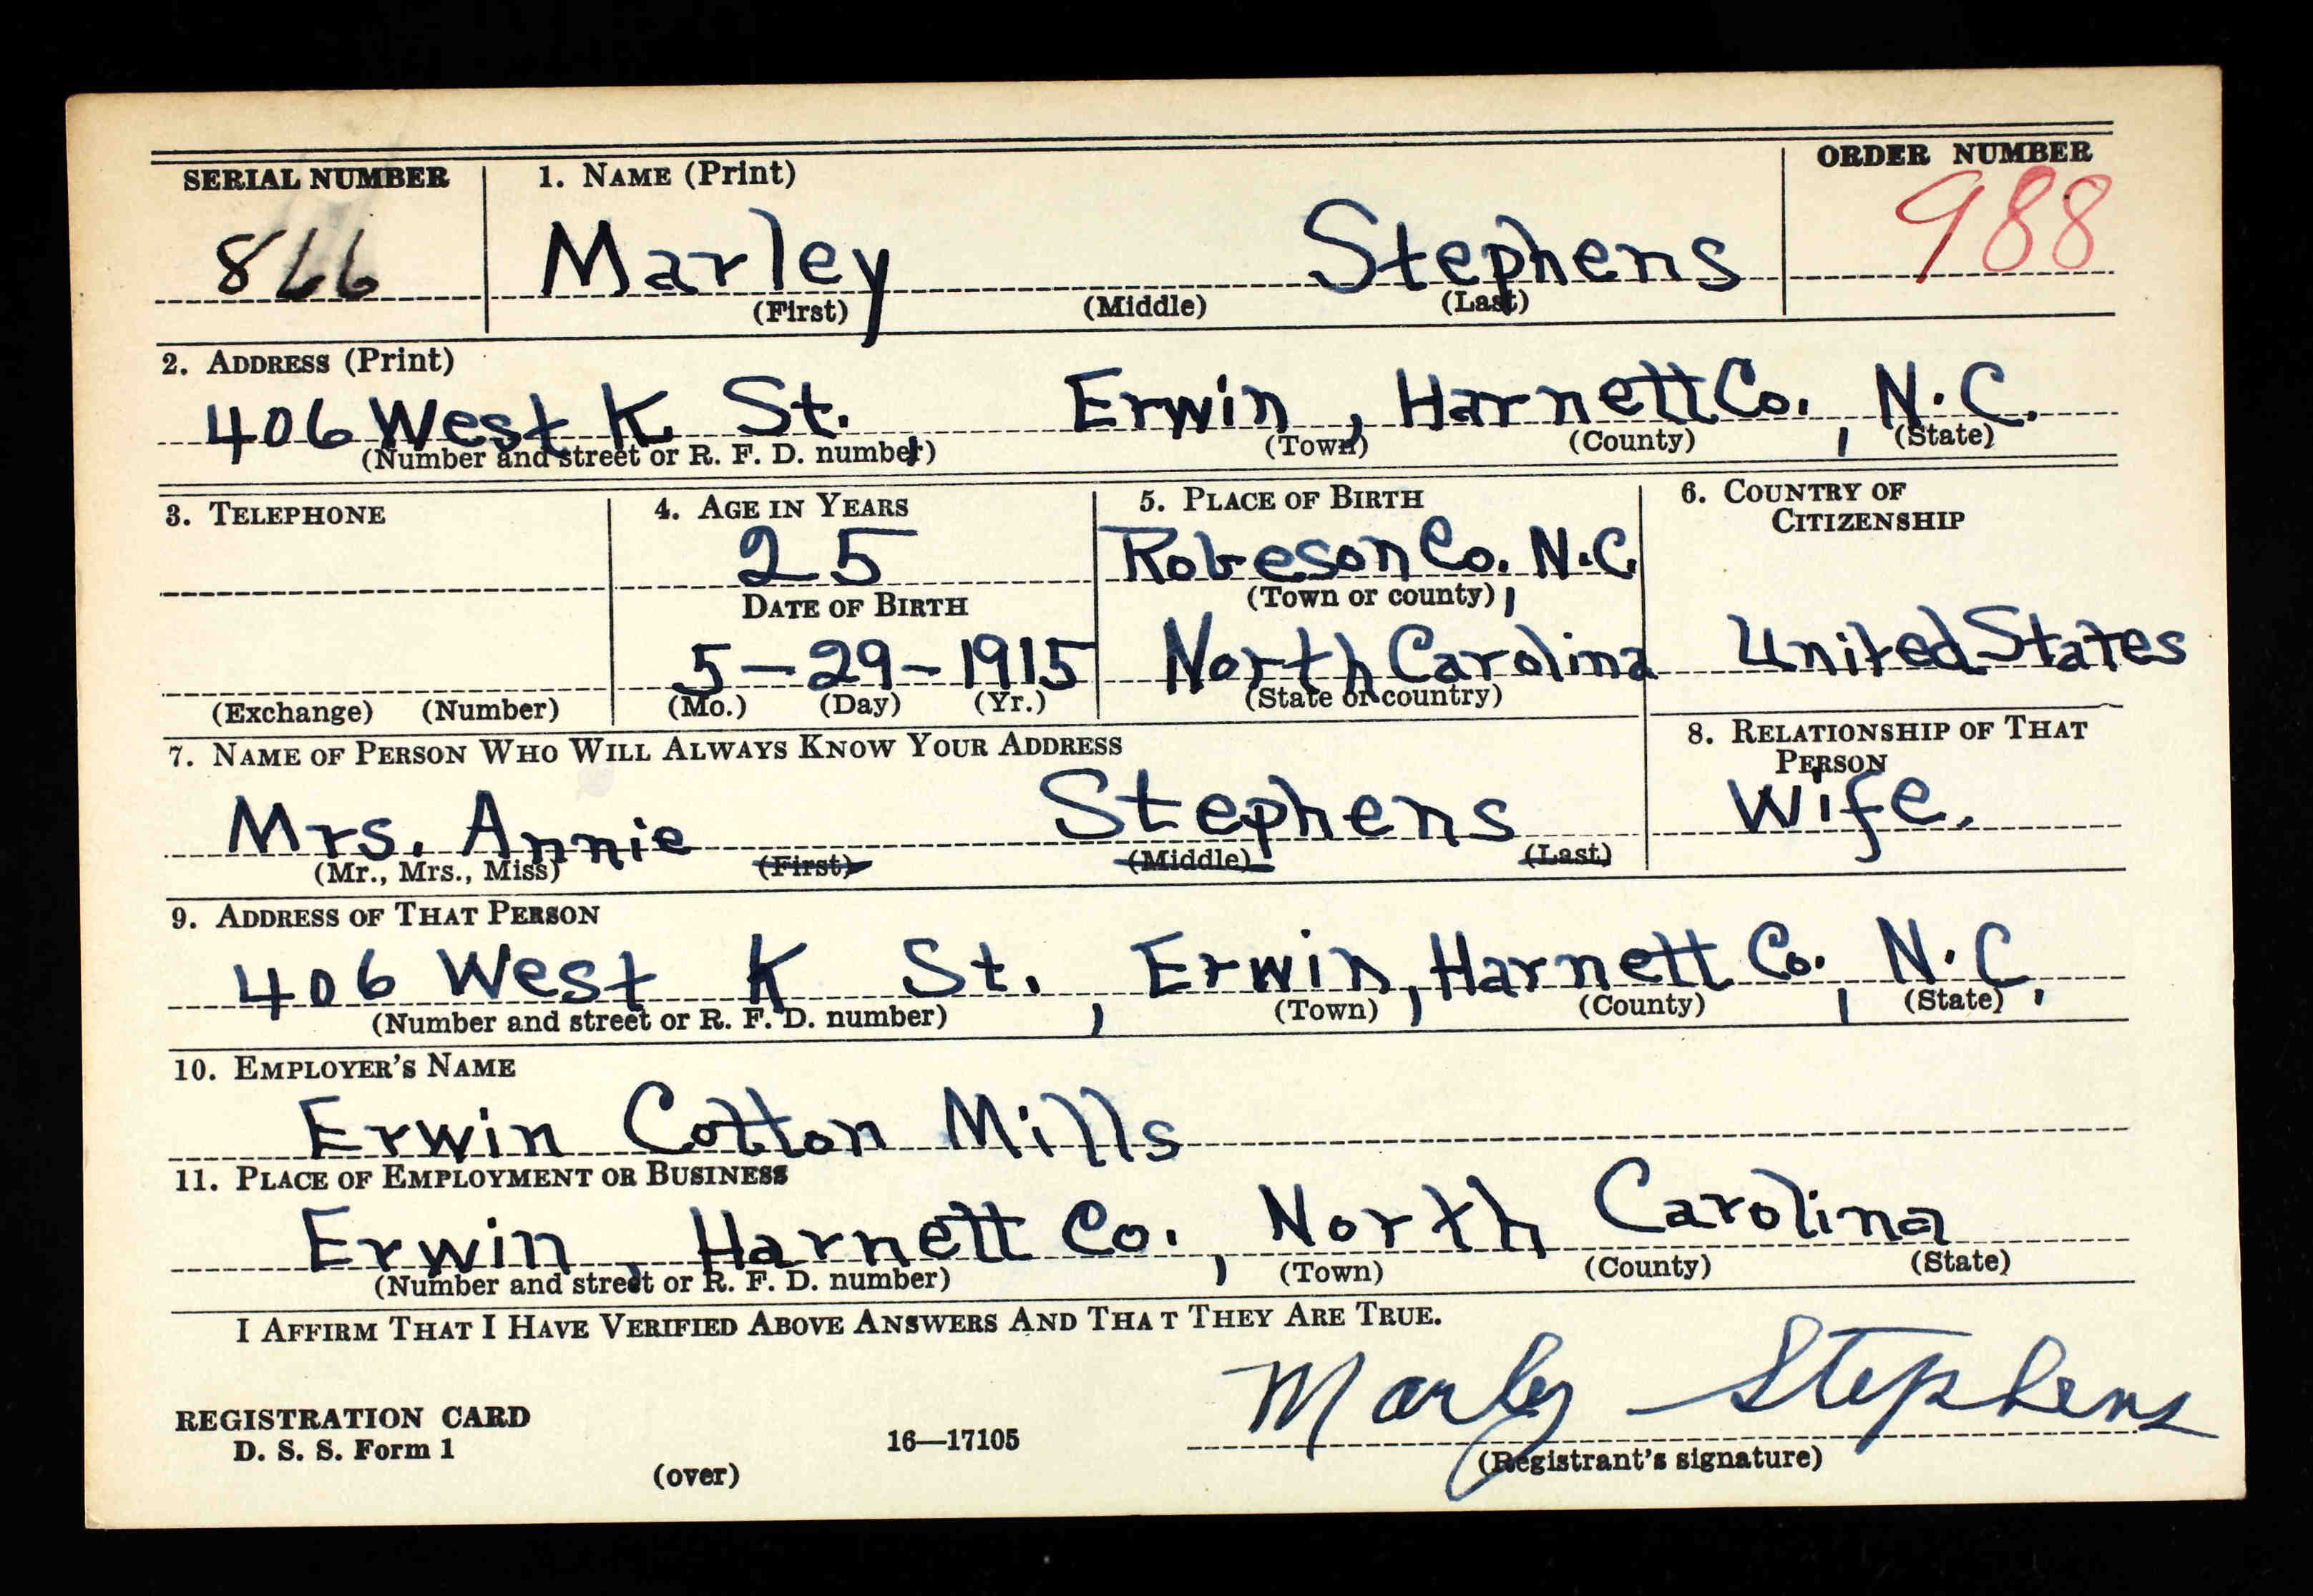 SERIAL NUMBER 1. NAME (Print) ORDER NUMBER
866 Marley Stephens 988
(First) (Middle) (Last)
2. ADDRESS (Print)
406 West K St., Erwin, Harnett Co., N.C.
(Number and street or R. F. D. number) (Town) (County) (State)
3. TELEPHONE 4. AGE IN YEARS 5. PLACE OF BIRTH 6. COUNTRY OF
CITIZENSHIP
25 Robeson Co. N.C.,
DATE OF BIRTH (Town or county)
5-29-1915 North Carolina United States
(Exchange) (Number) (Mo.) (Day) (Yr.) (State or country)
7. NAME OF PERSON WHO WILL ALWAYS KNOW YOUR ADDRESS 8. RELATIONSHIP OF THAT
PERSON
Mrs. Annie Stephens Wife.
(Mr., Mrs., Miss) (First) (Middle) (Last)
9. ADDRESS OF THAT PERSON
406 West K St., Erwin, Harnett Co., N.C.
(Number and street or R. F. D. number) (Town) (County) (State)
10. EMPLOYER'S NAME
Erwin Cotton Mills
11. PLACE OF EMPLOYMENT OR BUSINESS
Erwin, Harnett Co., North Carolina
(Number and street or R. F. D. number) (Town) (County) (State)
I AFFIRM THAT I HAVE VERIFIED ABOVE ANSWERS AND THAT THEY ARE TRUE.
Marley Stephens
REGISTRATION CARD
D. S. S. Form 1 16—17105 (Registrant's signature)
(over)